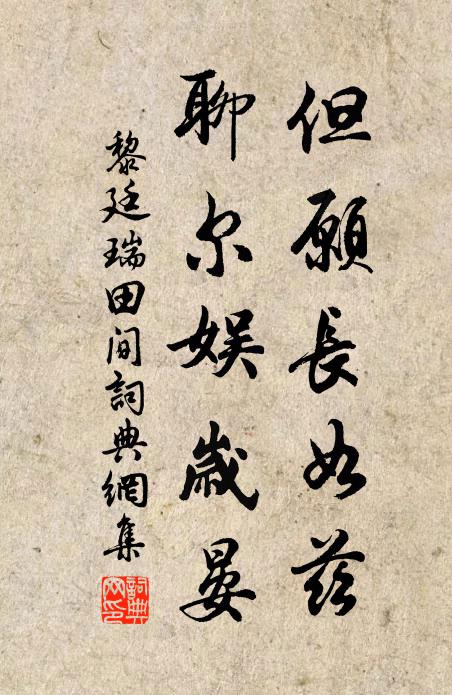 但願長如茲
聊尔娱歲晏
黎廷瑞田間詞典網集
詞典網印